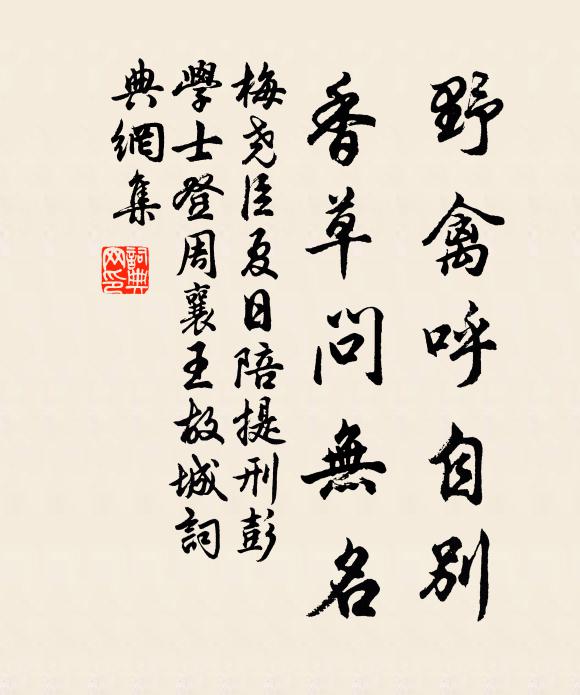 野禽呼自別
香草問無名
梅尧臣夏日陪提刑彭
學士登周襄王故城詞
典網集
詞典網印